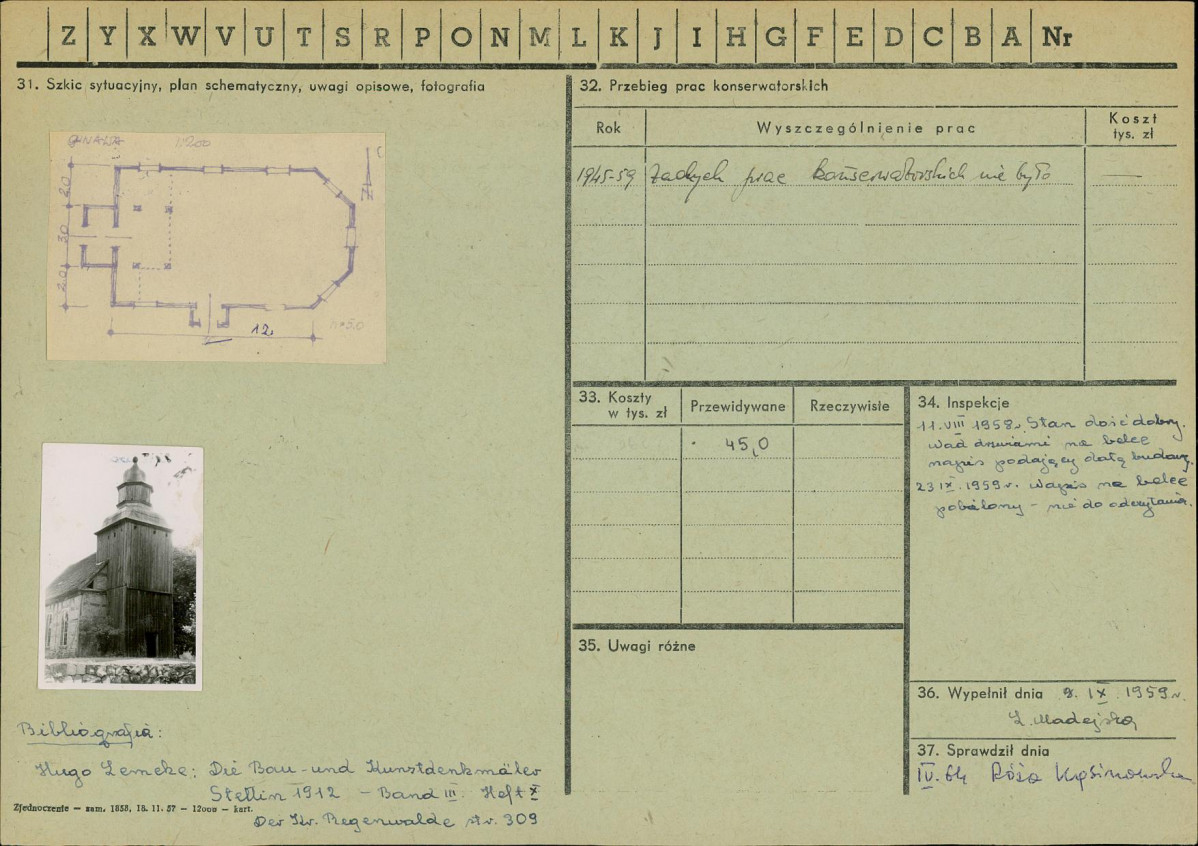 Z Y X W V U T S R P O N M L K J I H G F E D C B A Nr
31. Szkic sytuacyjny, plan schematyczny, uwagi opisowe, fotografia
GINAWA 1:200
2.0
3.0
2.0
12.
N
Bibliografia:
Hugo Lemcke: Die Bau- und Kunstdenkmäler
Stettin 1912 - Band III. Heft X
Der Kr. Regenwalde str. 309
Zjednoczenie — zam. 1858, 18. 11. 57 — 12000 — kart.
32. Przebieg prac konserwatorskich
Rok Wyszczególnienie prac Koszt tys. zł
1945-59 żadnych prac konserwatorskich nie było —
33. Koszty w tys. zł Przewidywane Rzeczywiste
45,0
34. Inspekcje
11. VIII 1958r. Stan dość dobry.
Nad drzwiami na belce
napis podający datę budowy.
23 IX. 1959r. Napis na belce
pobielony - nie do odczytania.
35. Uwagi różne
36. Wypełnił dnia 9. IX. 1959r.
Ł. Madejska
37. Sprawdził dnia
IV. 64 Róża Kąsinowska